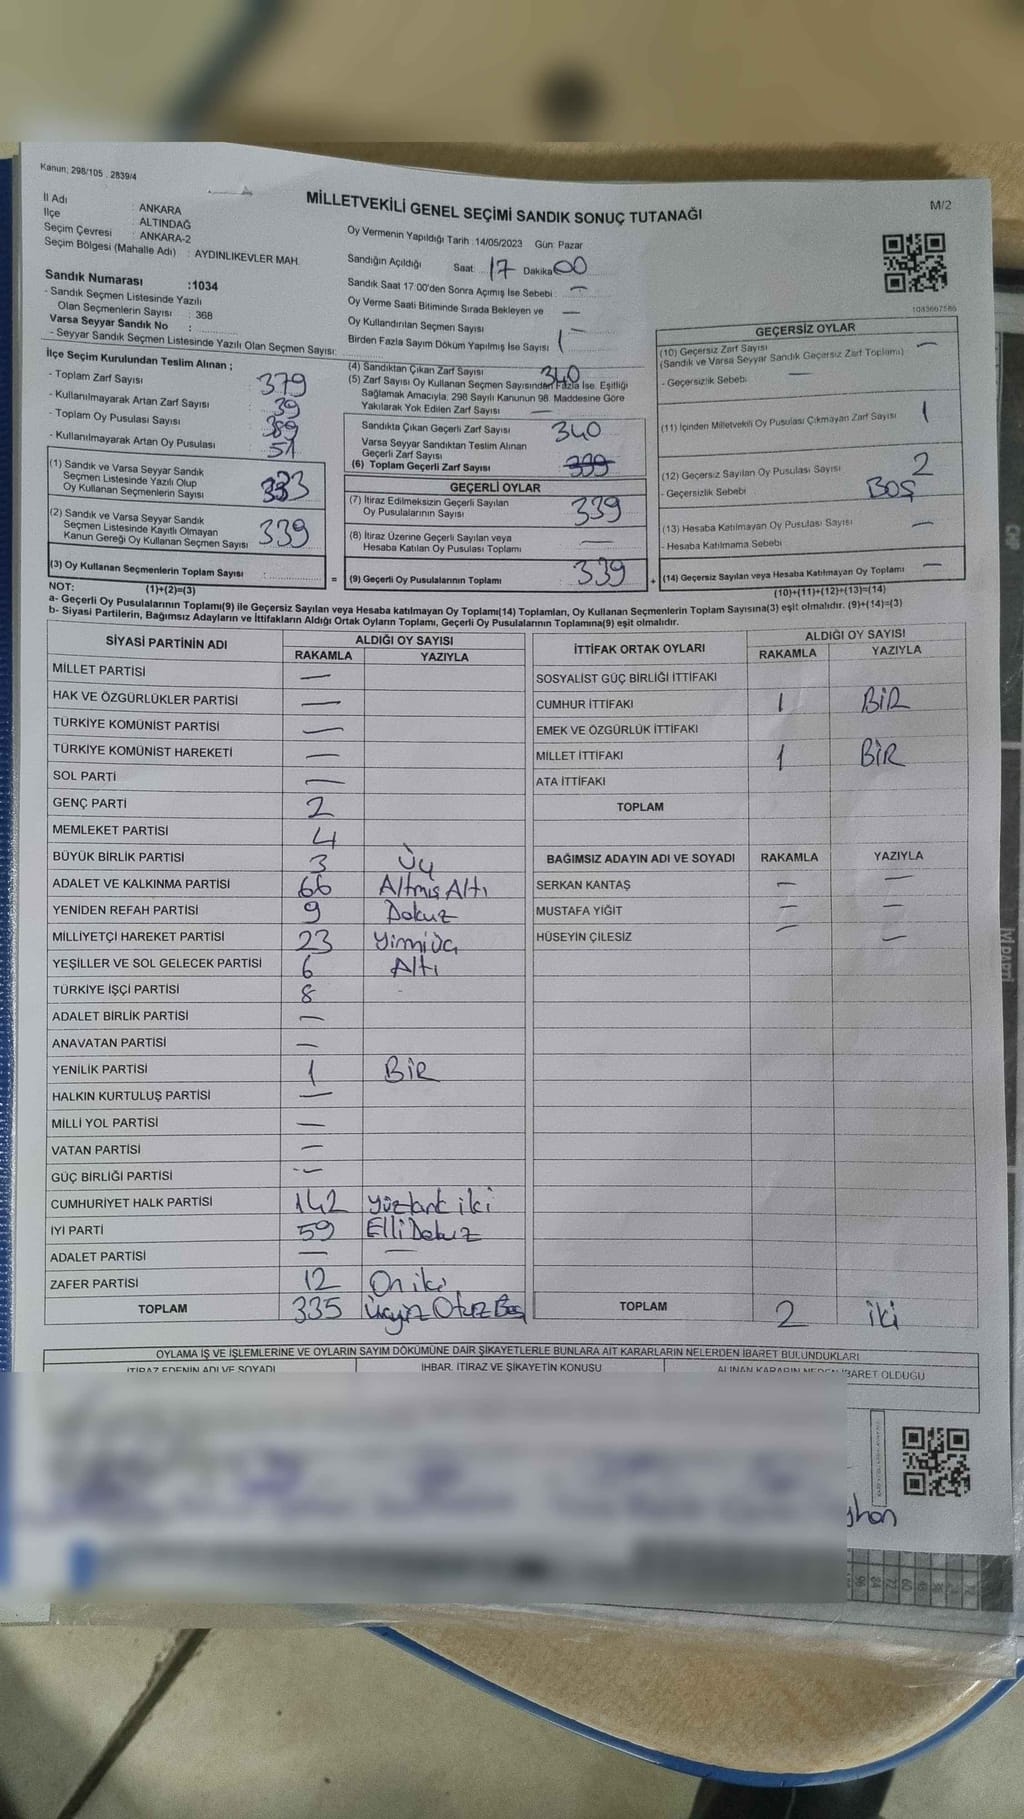 Kanun: 298/105 . 2839/4
MİLLETVEKİLİ GENEL SEÇİMİ SANDIK SONUÇ TUTANAĞI
M/2
İl Adı : ANKARA
İlçe : ALTINDAĞ
Seçim Çevresi : ANKARA-2
Seçim Bölgesi (Mahalle Adı) : AYDINLIKEVLER MAH.
Sandık Numarası :1034
- Sandık Seçmen Listesinde Yazılı
Olan Seçmenlerin Sayısı : 368
Varsa Seyyar Sandık No :
- Seyyar Sandık Seçmen Listesinde Yazılı Olan Seçmen Sayısı:
Oy Vermenin Yapıldığı Tarih :14/05/2023 Gün: Pazar
Sandığın Açıldığı Saat 17 Dakika 00
Sandık Saat 17:00'den Sonra Açımış İse Sebebi : —
Oy Verme Saati Bitiminde Sırada Bekleyen ve —
Oy Kullandırılan Seçmen Sayısı —
Birden Fazla Sayım Döküm Yapılmış İse Sayısı 1
1083667586
İlçe Seçim Kurulundan Teslim Alınan ;
- Toplam Zarf Sayısı 379
- Kullanılmayarak Artan Zarf Sayısı 39
- Toplam Oy Pusulası Sayısı 389
- Kullanılmayarak Artan Oy Pusulası 51
(1) Sandık ve Varsa Seyyar Sandık
Seçmen Listesinde Yazılı Olup
Oy Kullanan Seçmenlerin Sayısı
(2) Sandık ve Varsa Seyyar Sandık
Seçmen Listesinde Kayıtlı Olmayan
Kanun Gereği Oy Kullanan Seçmen Sayısı 339
(3) Oy Kullanan Seçmenlerin Toplam Sayısı :
(1)+(2)=(3)
(4) Sandıktan Çıkan Zarf Sayısı 340
(5) Zarf Sayısı Oy Kullanan Seçmen Sayısından Fazla İse. Eşitliği
Sağlamak Amacıyla, 298 Sayılı Kanunun 98. Maddesine Göre
Yakılarak Yok Edilen Zarf Sayısı —
Sandıkta Çıkan Geçerli Zarf Sayısı 340
Varsa Seyyar Sandıktan Teslim Alınan
Geçerli Zarf Sayısı
(6) Toplam Geçerli Zarf Sayısı 399
GEÇERLİ OYLAR
(7) İtiraz Edilmeksizin Geçerli Sayılan
Oy Pusulalarının Sayısı 339
(8) İtiraz Üzerine Geçerli Sayılan veya
Hesaba Katılan Oy Pusulası Toplamı —
= (9) Geçerli Oy Pusulalarının Toplamı 339 +
GEÇERSİZ OYLAR
(10) Geçersiz Zarf Sayısı —
(Sandık ve Varsa Seyyar Sandık Geçersiz Zarf Toplamı)
- Geçersizlik Sebebi —
(11) İçinden Milletvekili Oy Pusulası Çıkmayan Zarf Sayısı 1
(12) Geçersiz Sayılan Oy Pusulası Sayısı 2
- Geçersizlik Sebebi BOŞ
(13) Hesaba Katılmayan Oy Pusulası Sayısı —
- Hesaba Katılmama Sebebi
(14) Geçersiz Sayılan veya Hesaba Katılmayan Oy Toplamı —
(10)+(11)+(12)+(13)=(14)
NOT:
a- Geçerli Oy Pusulalarının Toplamı(9) ile Geçersiz Sayılan veya Hesaba katılmayan Oy Toplamı(14) Toplamları, Oy Kullanan Seçmenlerin Toplam Sayısına(3) eşit olmalıdır. (9)+(14)=(3)
b- Siyasi Partilerin, Bağımsız Adayların ve İttifakların Aldığı Ortak Oyların Toplamı, Geçerli Oy Pusulalarının Toplamına(9) eşit olmalıdır.
SİYASİ PARTİNİN ADI ALDIĞI OY SAYISI
RAKAMLA YAZIYLA
MİLLET PARTİSİ —
HAK VE ÖZGÜRLÜKLER PARTİSİ —
TÜRKİYE KOMÜNİST PARTİSİ —
TÜRKİYE KOMÜNİST HAREKETİ —
SOL PARTİ —
GENÇ PARTİ 2
MEMLEKET PARTİSİ 4
BÜYÜK BİRLİK PARTİSİ 3 Üç
ADALET VE KALKINMA PARTİSİ 66 Altmış Altı
YENİDEN REFAH PARTİSİ 9 Dokuz
MİLLİYETÇİ HAREKET PARTİSİ 23
YEŞİLLER VE SOL GELECEK PARTİSİ 6 Altı
TÜRKİYE İŞÇİ PARTİSİ 8 -
ADALET BİRLİK PARTİSİ —
ANAVATAN PARTİSİ —
YENİLİK PARTİSİ 1 BİR
HALKIN KURTULUŞ PARTİSİ —
MİLLİ YOL PARTİSİ —
VATAN PARTİSİ —
GÜÇ BİRLİĞİ PARTİSİ —
CUMHURİYET HALK PARTİSİ 142 yüzkırk iki
İYİ PARTİ 59 Elli Dokuz
ADALET PARTİSİ — —
ZAFER PARTİSİ 12 On iki
TOPLAM 335 üçyüz Otuz Beş
İTTİFAK ORTAK OYLARI ALDIĞI OY SAYISI
RAKAMLA YAZIYLA
SOSYALİST GÜÇ BİRLİĞİ İTTİFAKI
CUMHUR İTTİFAKI 1 BİR
EMEK VE ÖZGÜRLÜK İTTİFAKI
MİLLET İTTİFAKI 1 BİR
ATA İTTİFAKI
TOPLAM
BAĞIMSIZ ADAYIN ADI VE SOYADI RAKAMLA YAZIYLA
SERKAN KANTAŞ — —
MUSTAFA YİĞİT — —
HÜSEYİN ÇİLESİZ — —
TOPLAM 2 iki
OYLAMA İŞ VE İŞLEMLERİNE VE OYLARIN SAYIM DÖKÜMÜNE DAİR ŞİKAYETLERLE BUNLARA AİT KARARLARIN NELERDEN İBARET BULUNDUKLARI
İTİRAZ EDENİN ADI VE SOYADI İHBAR, İTİRAZ VE ŞİKAYETİN KONUSU ALINAN KARARIN NEDEN İBARET OLDUĞU
CHP
İYİ PARTİ
96 84 72 60